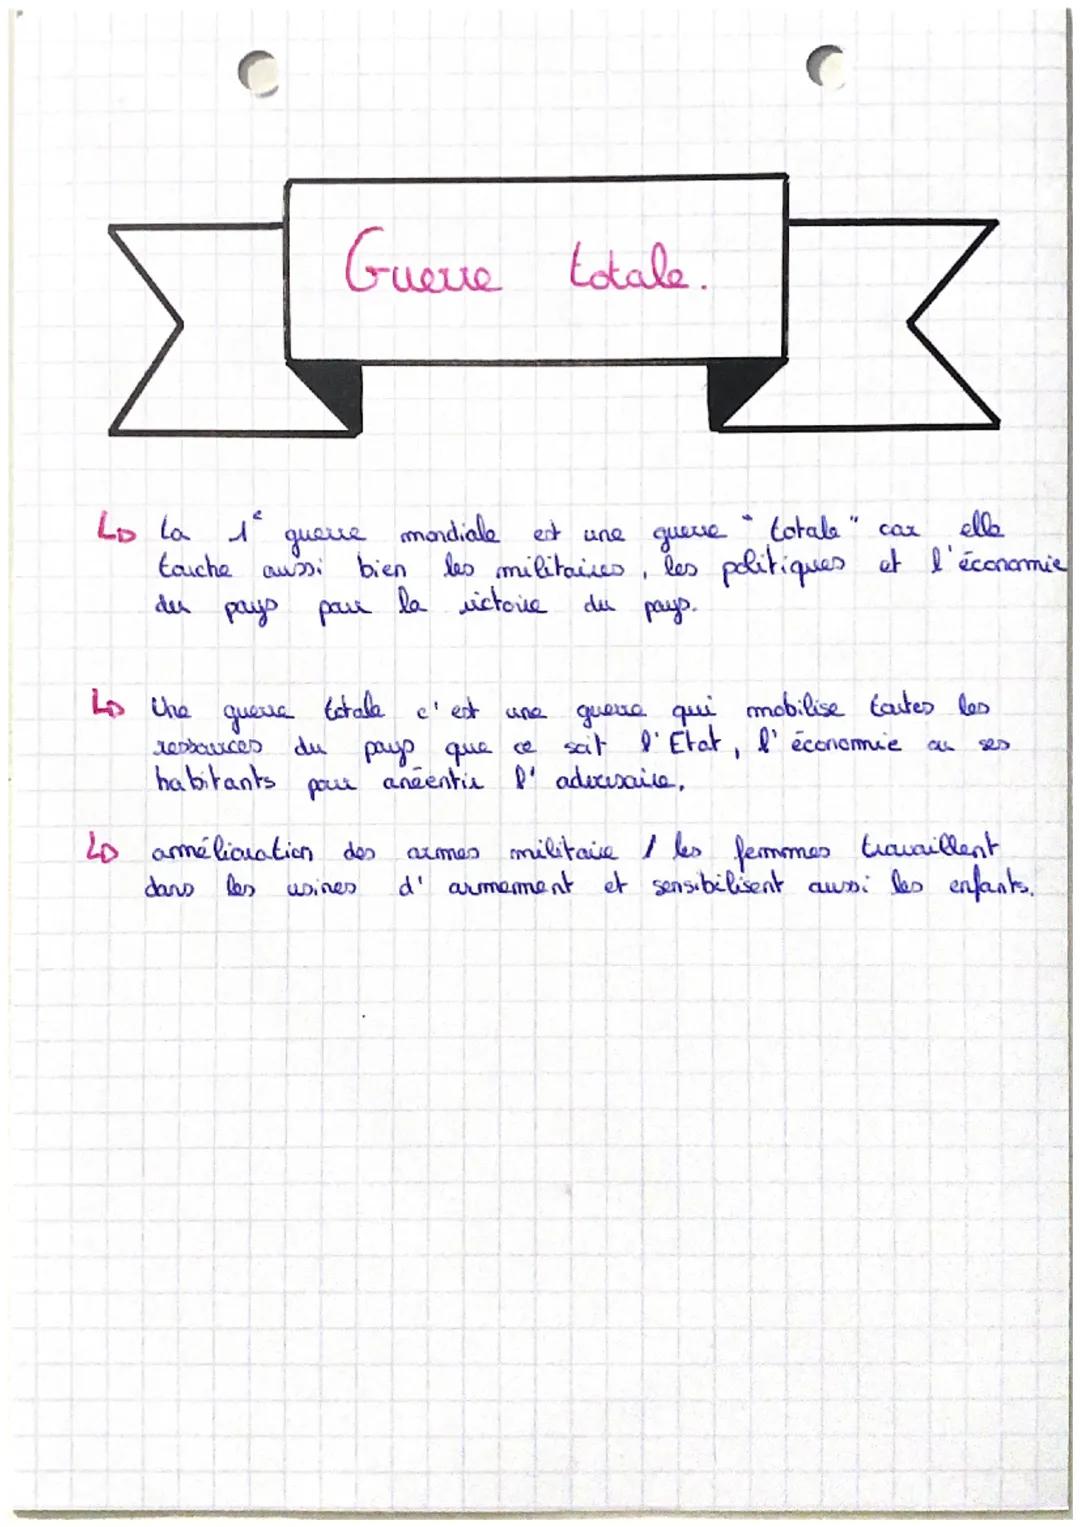 Guerre totale.
La 1e guerre mondiale est une guerre "totale" car elle
touche aussi bien les militaires, les politiques et l'économie
du pays pour la victoire du pays.
Une guerre totale c'est une guerre qui mobilise toutes les
ressources du pays que ce soit l'Etat, l'économie ou ses
habitants pour anéentir l'adversaire.
amélioration des armes militaire / les femmes travaillent
dans les usines d'armement et sensibilisent aussi les enfants.